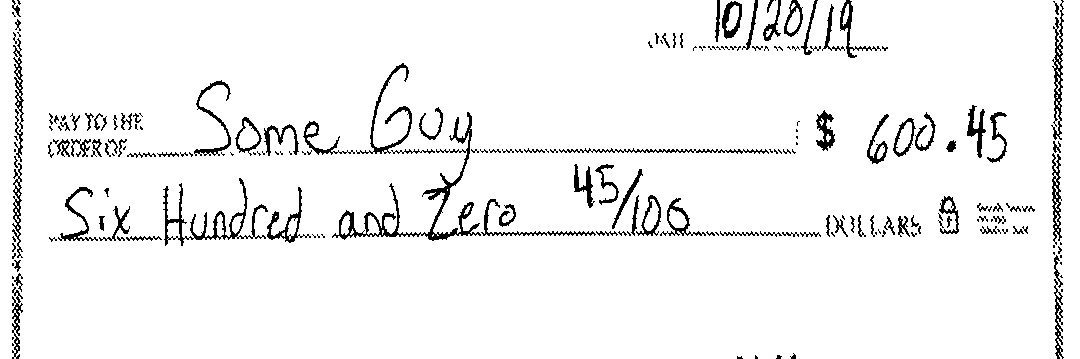 DATE 10/20/19
PAY TO THE
ORDER OF Some Guy $ 600.45
Six Hundred and Zero 45/100 DOLLARS